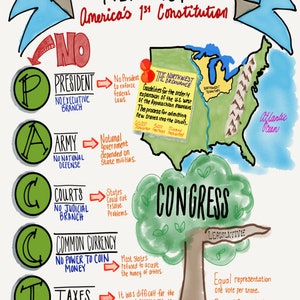 America's 1st Constitution
NO
P
PRESIDENT
NO EXECUTIVE
BRANCH
No President
to enforce
federal
laws.
THE NORTHWEST
ORDINANCE
Guidelines for the orderly
expansion of the U.S. west
of the Appalachian Mountains.
The process for admitting
new states into the Union.
Atlantic
Ocean
A
ARMY
NO NATIONAL
DEFENSE
National
Government
dependent on
State militias.
C
COURTS
NO JUDICIAL
BRANCH
States
Could not
resolve
Problems.
CONGRESS
LEGISLATIVE
C
COMMON CURRENCY
NO POWER TO COIN
MONEY
Most States
refused to accept
the money of others.
T
TAXES
It was difficult for the
Equal representation
one vote per state.